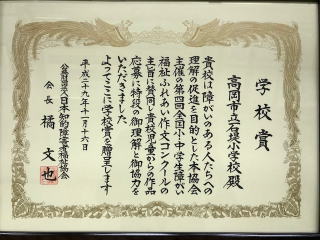 学校賞
高岡市立石堤小学校殿
貴校は障がいのある人たちへの
理解の促進を目的とした本協会
主催の第四回全国小中学生障がい
福祉ふれあい作文コンクールの
主旨に賛同し貴校児童からの作品
応募に特段の御理解と御協力を
いただきました
よってここに学校賞を贈呈します
平成二十九年十一月十六日
公益財団法人日本知的障害者福祉協会
会長 橘 文也